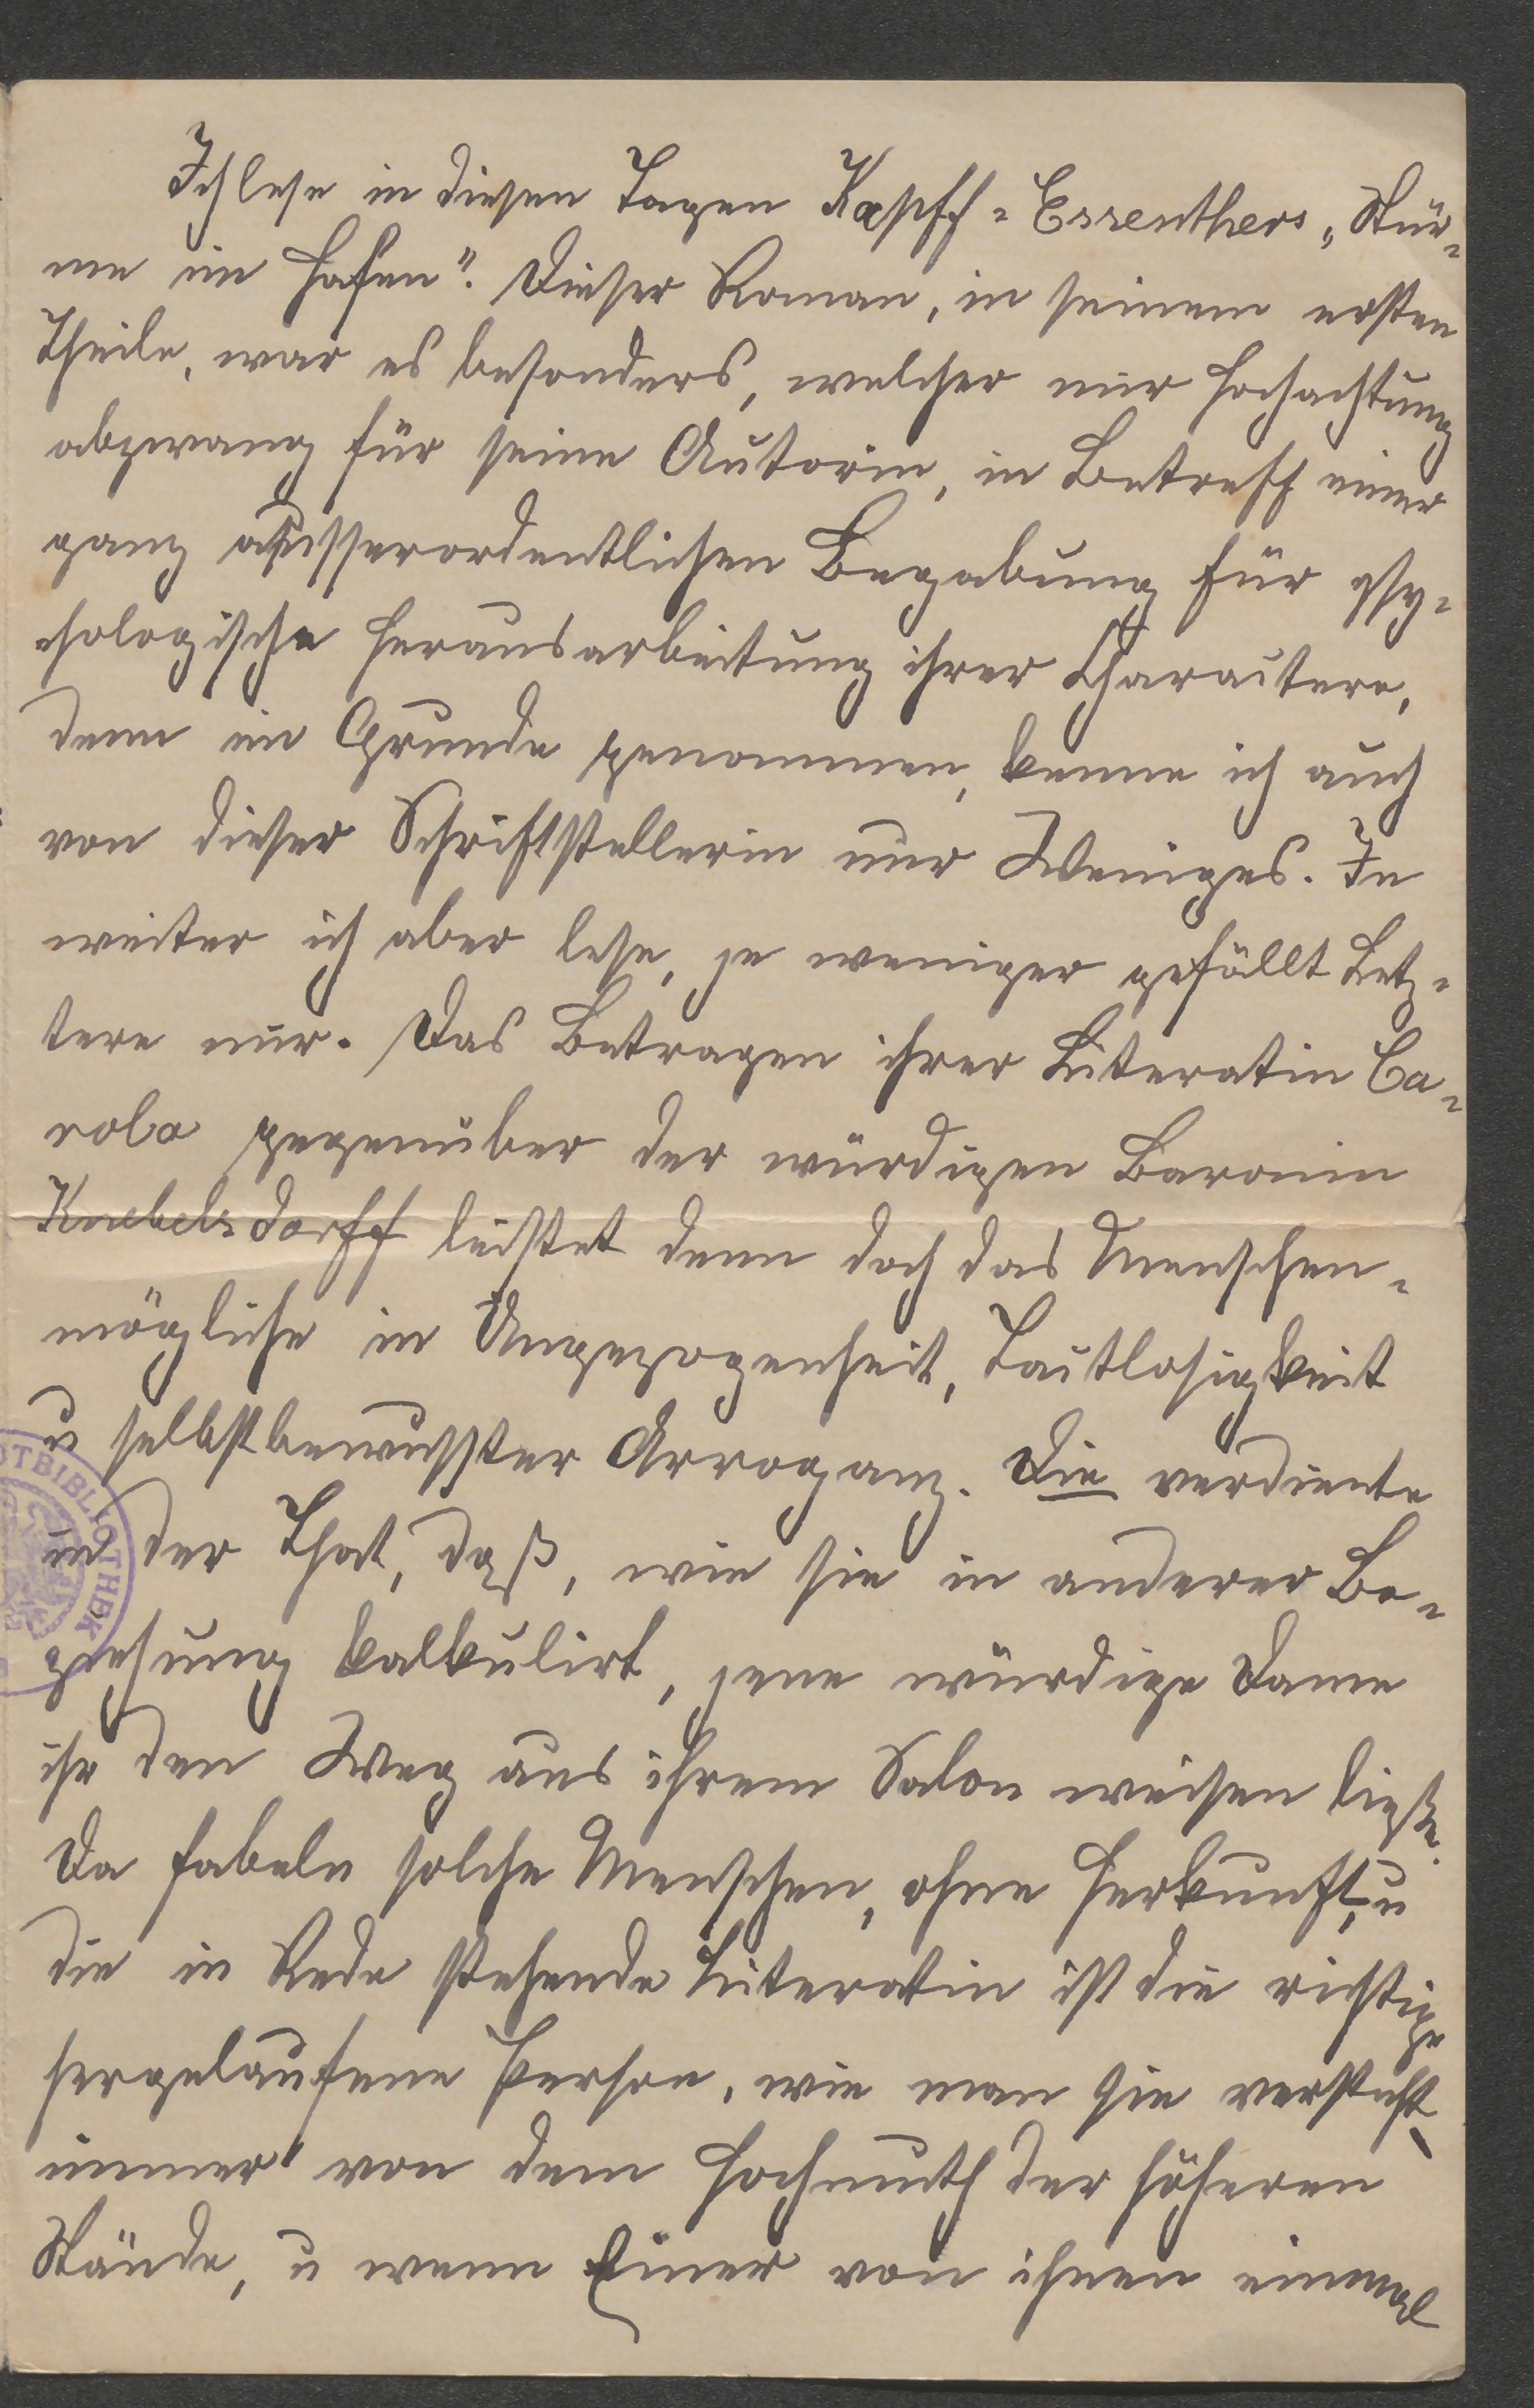 Ich lese in diesen Tagen Kapff=Essenthers „Stür=
me im Hafen“. Dieser Roman, in seinem ersten
Theile, war es besonders, welcher mir Hochachtung
abzwang für seine Autorin, in Betreff einer
ganz ausserordentlichen Begabung für psy=
chologische Herausarbeitung ihrer Charactere,
denn im Grunde genommen, kenne ich auch
von dieser Schriftstellerin nur Weniges. Je
weiter ich aber lese, je weniger gefällt Letz=
tere mir. Das Betragen ihrer Literatin Ca=
rola gegenüber der würdigen Baronin
Knebelsdorff leistet denn doch das Menschen=
mögliche in Ungezogenheit, Tactlosigkeit
u selbstbewusster Arroganz. Die verdiente
in der That, daß, wie sie in anderer Be=
ziehung kalkulirt, jene würdige Dame
ihr den Weg aus ihrem Salon weisen ließe.
Da fabeln solche Menschen, ohne Herkunft, u
die in Rede stehende Literatin ist die richtige
hergelaufene Person, wie man sie versteht,
immer von dem Hochmuth der höheren
Stände, u wenn Einer von ihnen einmal
OTBIBLIOTHEK